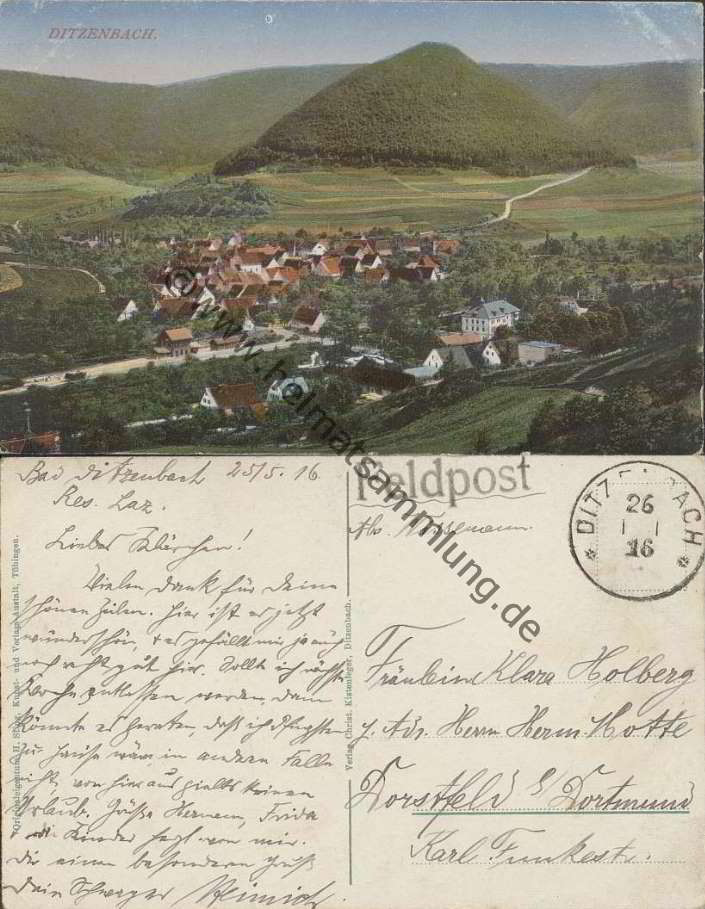 DITZENBACH.
© www.heimatsammlung.de
Bad Ditzenbach 25/5. 16
Res. Laz.
Liebes Klärchen!
Vielen Dank für Deine
schönen Zeilen. Hier ist es jetzt
wunderschön, & es gefällt mir ja auch
noch recht gut hier. Sollte ich nächste
Woche entlassen werden, dann
könnte es geraten, daß ich Pfingsten
zu Hause wäre im andern Falle
nicht, von hier aus giebts keinen
Urlaub. Grüße Hermann, Frida
& die Kinder von mir.
Dir einen besonderen Gruß
Dein Schwager Heinrich
Originaleigentum H. Kunst- und Verlags-Anstalt, Tübingen.
Verlag Christ. Kistenfeger, Ditzenbach.
Feldpost
Abs.
DITZENBACH
26
16
Fräulein Klara Holberg
p. Adr. Herrn Herm. Hotte
Dorstfeld b/ Dortmund
Karl Funkestr.